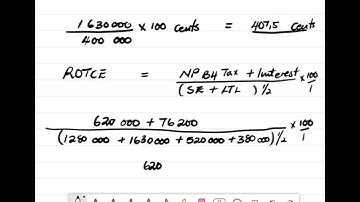 1630000 / 400 000 × 100 cents = 407,5 Cents
ROTCE = NP B4 Tax + Interest / (SE + LTL) ½ × 100/1
620 000 + 76 200 / (1280 000 + 1630 000 + 520 000 + 380 000) ½ × 100/1
620